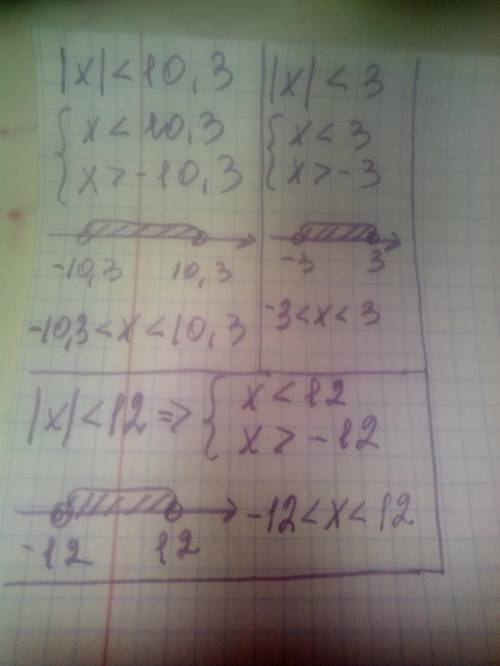 |x| < 10,3
{ x < 10,3
{ x > -10,3
-10,3 10,3
-10,3 < x < 10,3
|x| < 3
{ x < 3
{ x > -3
-3 3
-3 < x < 3
|x| < 12 => { x < 12
{ x > -12
-12 12
-12 < x < 12